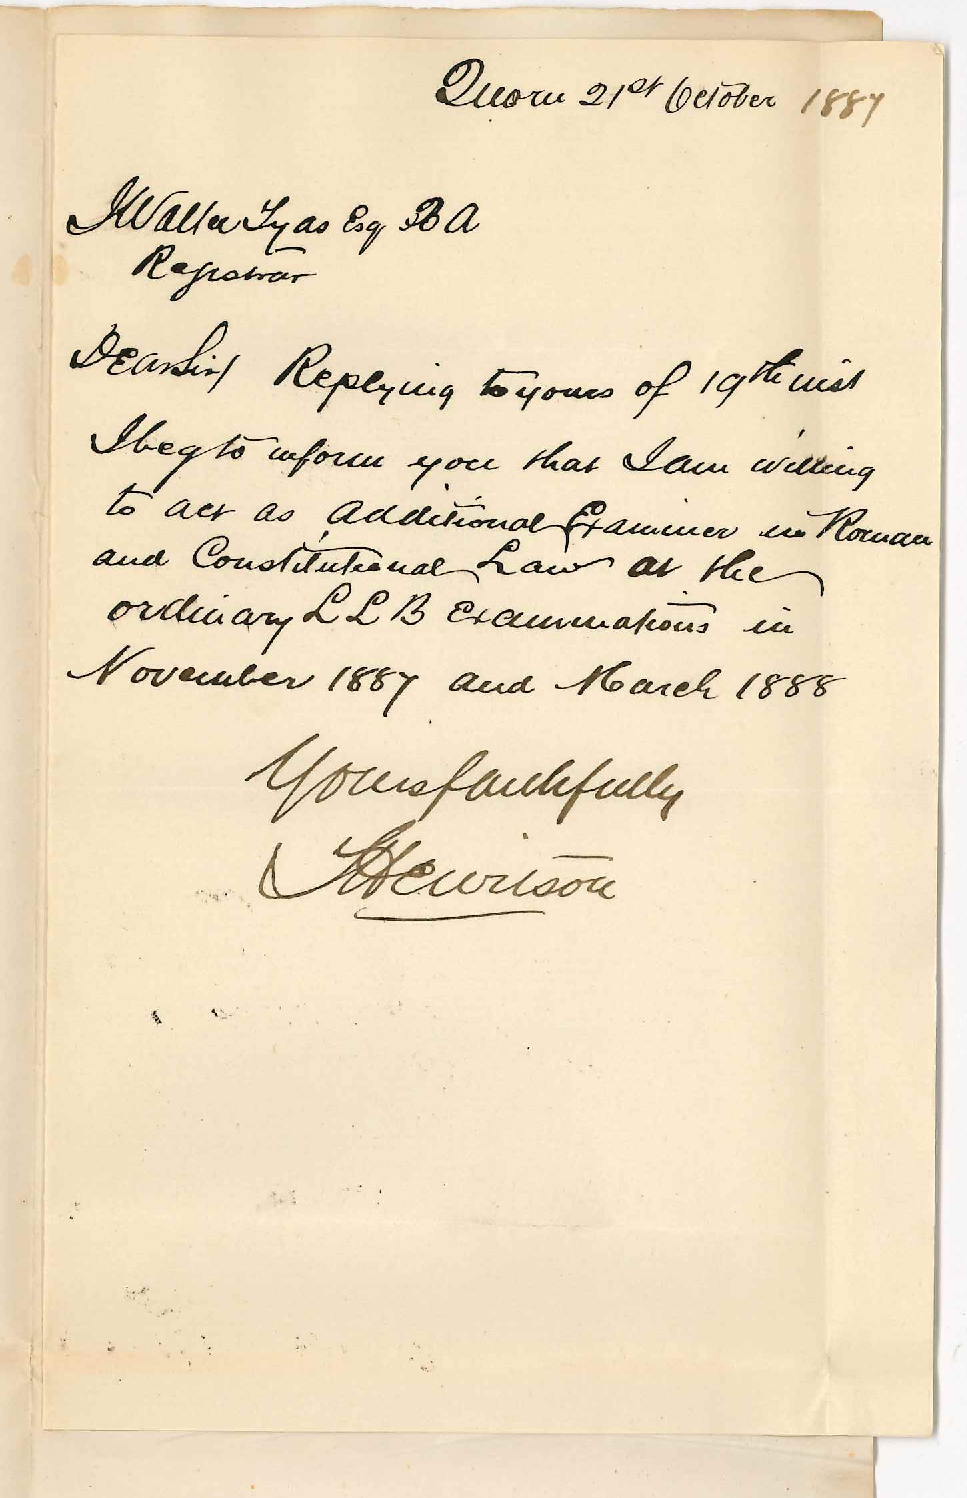 Quorn 21st October 1887
J Walter Tyas Esq B A
Registrar
Dear Sir/ Replying to yours of 19th inst
I beg to inform you that I am willing
to act as Additional Examiner in Roman
and Constitutional Law at the
ordinary L L B Examinations in
November 1887 and March 1888
Yours faithfully
Hewitson